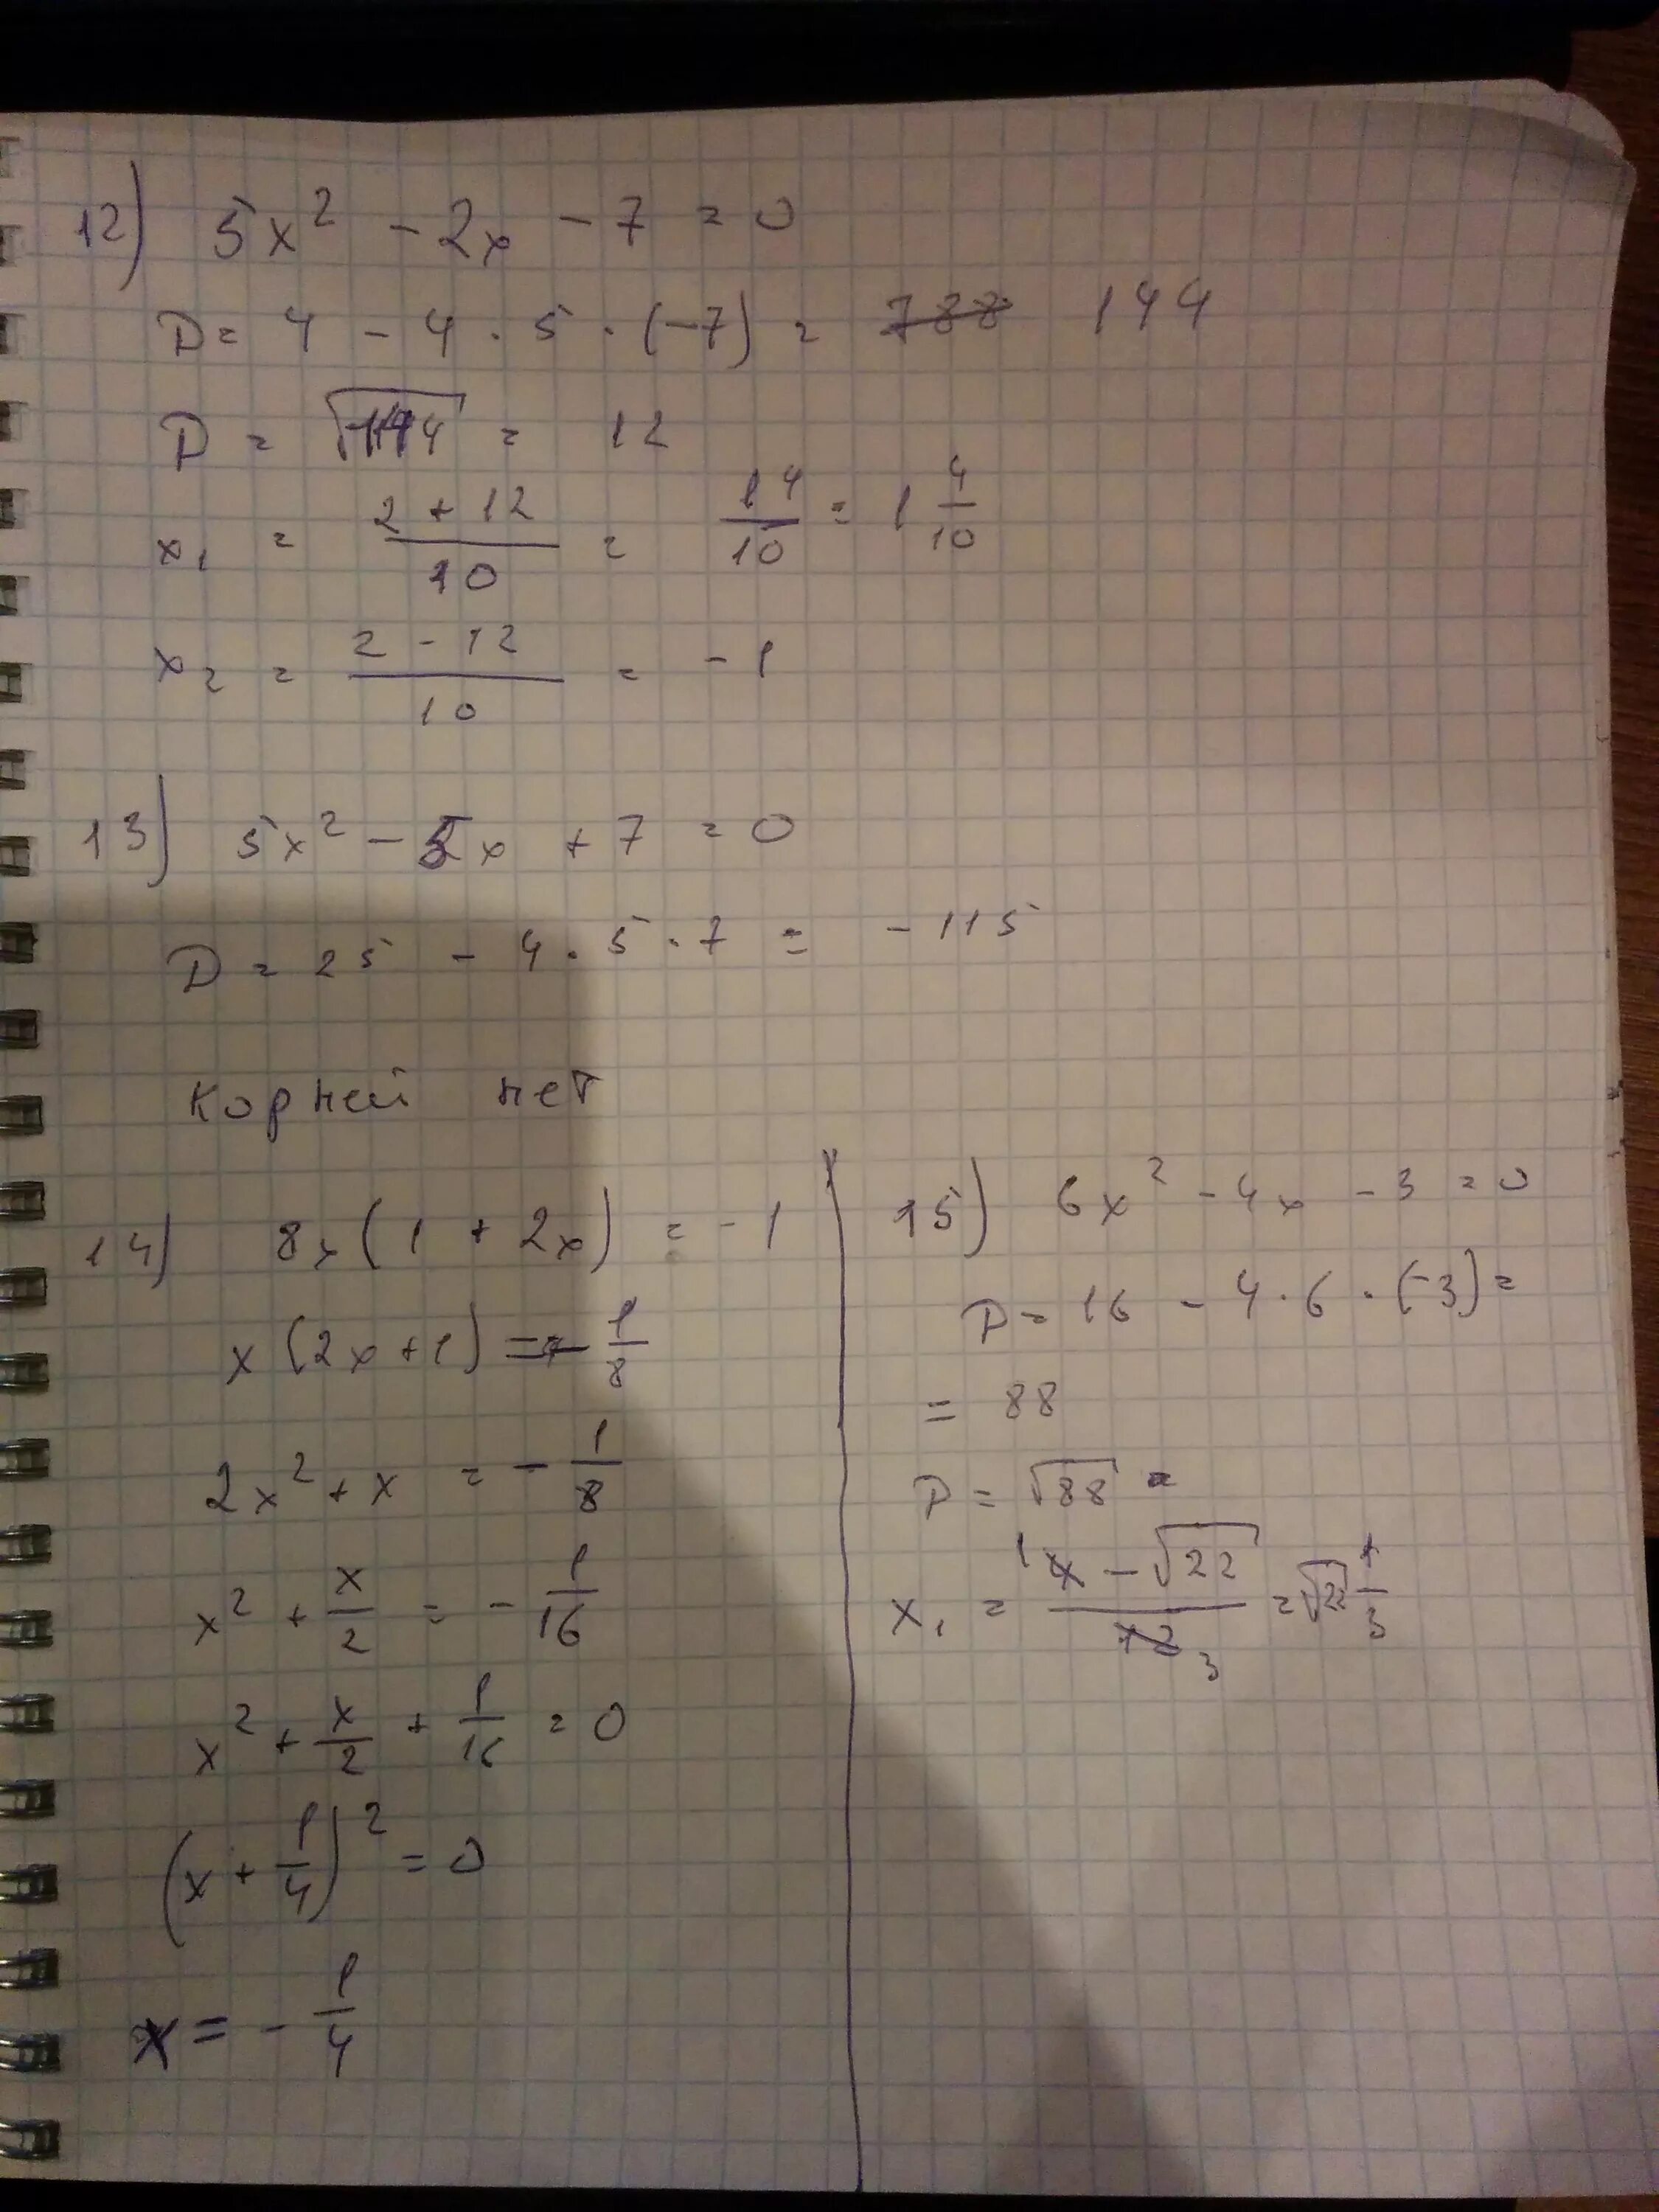 12) 5x² - 2x - 7 = 0
D = 4 - 4 · 5 · (-7) = 144
D = √144 = 12
x₁ = (2 + 12)/10 = 14/10 = 1 4/10
x₂ = (2 - 12)/10 = -1
13) 5x² - 5x + 7 = 0
D = 25 - 4 · 5 · 7 = -115
Корней нет
14) 8x(1 + 2x) = -1
x(2x+1) = -1/8
2x² + x = -1/8
x² + x/2 = -1/16
x² + x/2 + 1/16 = 0
(x + 1/4)² = 0
x = -1/4
15) 6x² - 4x - 3 = 0
D = 16 - 4 · 6 · (-3) =
= 88
D = √88 =
x₁ = (1 - √22)/3 = √22 1/3